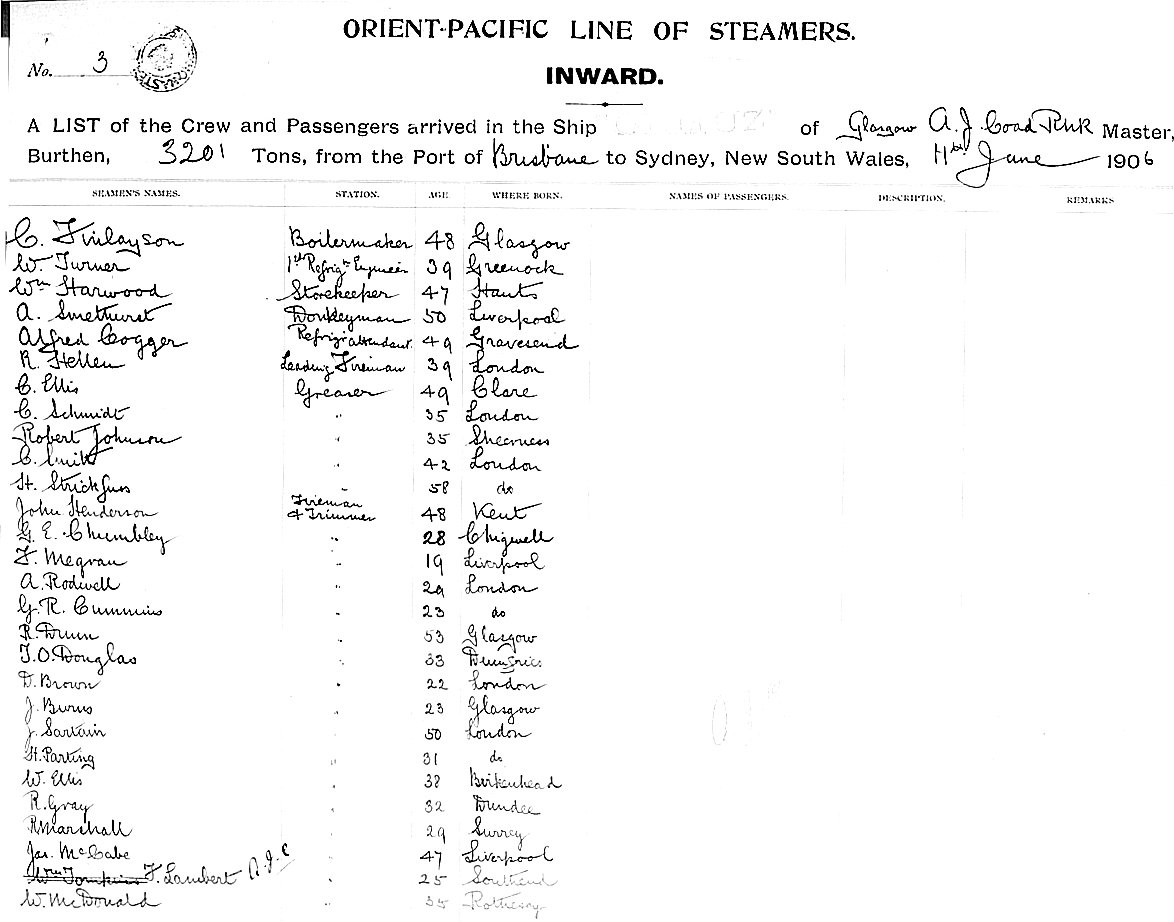 ORIENT-PACIFIC LINE OF STEAMERS.
No. 3
INWARD.
A LIST of the Crew and Passengers arrived in the Ship of Glasgow A. J. Coad RNR Master,
Burthen, 3201 Tons, from the Port of Brisbane to Sydney, New South Wales, June 1906
SEAMEN'S NAMES. STATION. AGE WHERE BORN. NAMES OF PASSENGERS. DESCRIPTION. REMARKS
C. Finlayson Boilermaker 48 Glasgow
W. Turner 1st Refrigr Engineer 39 Greenock
Wm Harwood Storekeeper 47 Hants
A. Smethurst Donkeyman 50 Liverpool
Alfred Cogger Refrigr attendant 49 Gravesend
R. Hellen Leading Fireman 39 London
C. Ellis Greaser 49 Clare
C. Schmidt " 35 London
Robert Johnson " 35 Sheerness
C. " 42 London
H. Strickfuss " 58 do
John Henderson Fireman & Trimmer 48 Kent
G. E. Chumbley " 28 Chigwell
F. Megran " 19 Liverpool
A. Rodwell " 29 London
G. R. Cummins " 23 do
R. Dunn " 53 Glasgow
T. O. Douglas " 33 Dumfries
D. Brown " 22 London
J. Burns " 23 Glasgow
J. Sartain " 50 London
H. Parting " 31 do
W. Ellis " 38 Birkenhead
R. Gray " 32 Dundee
R Marshall " 29 Surrey
Jas. McCabe " 47 Liverpool
Wm Tompkins F. Lambert A.J.C " 25 Southend
W. McDonald " 35 Rothesay